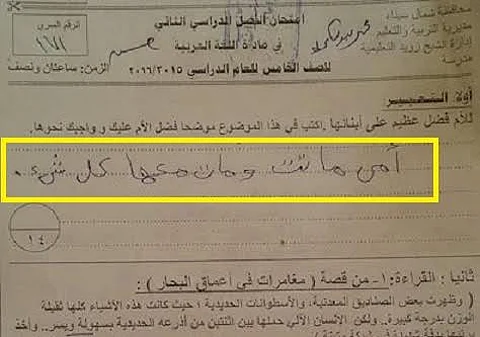 محافظة شمال سيناء
مديرية التربية والتعليم
إدارة الشيخ زويد التعليمية
مدرسة
امتحان الفصل الدراسي الثاني
في مادة اللغة العربية
للصف الخامس للعام الدراسي ٢٠١٦/٢٠١٥
الزمن: ساعتان ونصف
الرقم السري
١٧١
أولا : التعبير
للأم فضل عظيم على أبنائها .اكتب في هذا الموضوع موضحا فضل الأم عليك وواجبك نحوها.
أمي ماتت ومات معها كل شيء.
١٤
ثانيا : القراءة: ١- من قصة ( مغامرات في أعماق البحار ) :
( وظهرت بعض الصناديق المعدنية، والأسطوانات الحديدية ؛ حيث كانت هذه الأشياء كلها ثقيلة
الوزن بدرجة كبيرة.. ولكن الإنسان الآلي حملها بين اثنتين من أذرعه الحديدية بسهولة ويسر.. وأخذ